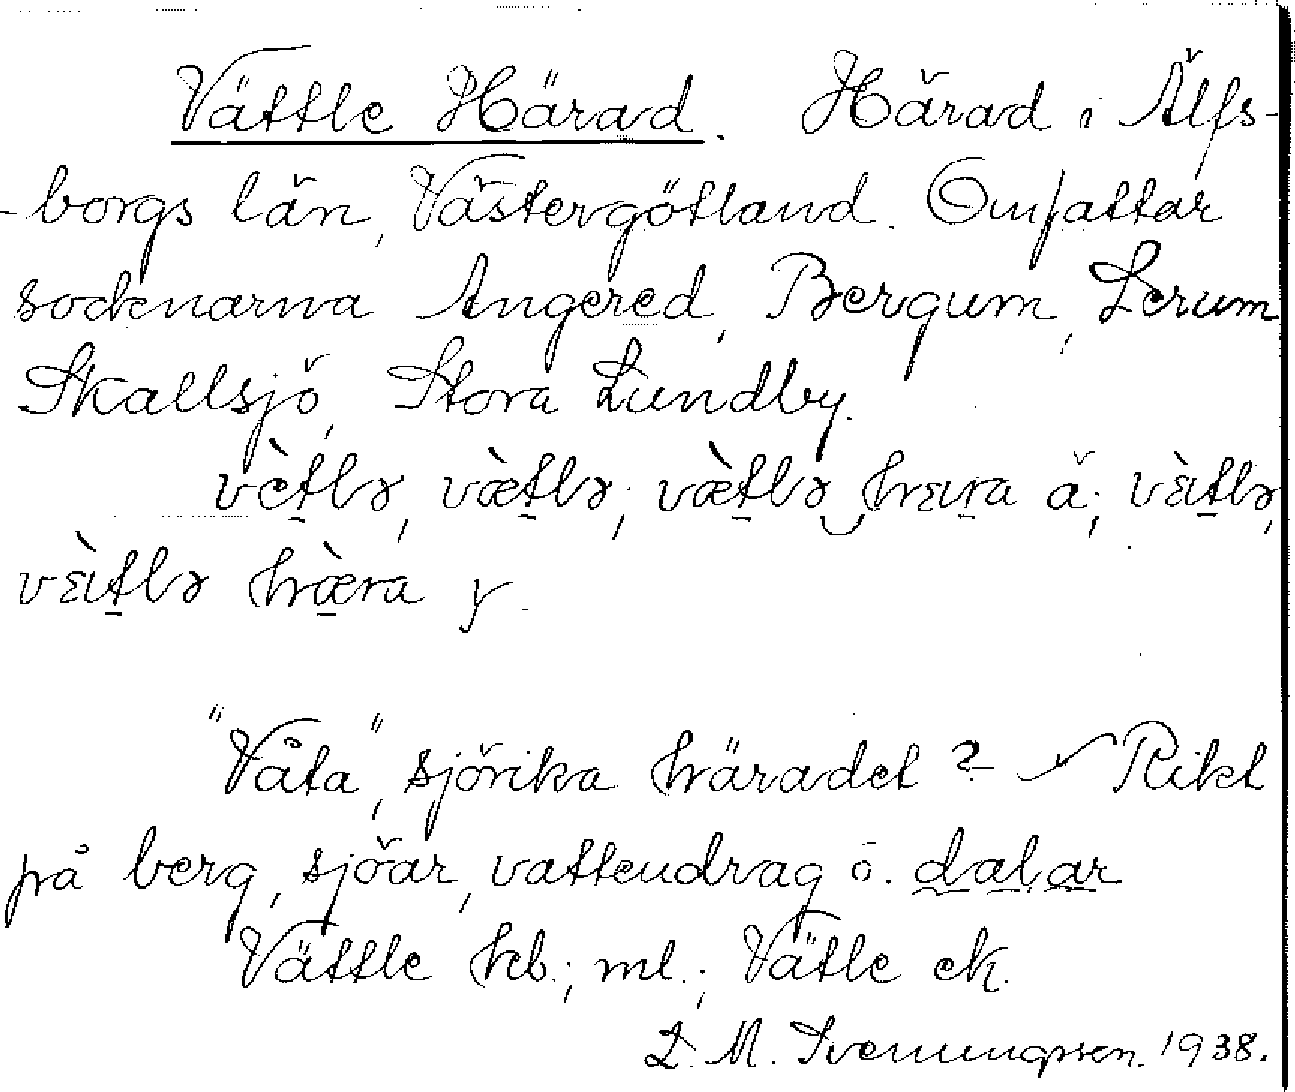 Vättle Härad. Härad i Älfs-
-borgs län, Västergötland. Omfattar
socknarna Angered, Bergum, Lerum
Skallsjö, Stora Lundby.
vètlə, vætlə; vætlə hæra ä; vèıtlə,
vèıtlə hæra y.
"Våta", sjörika häradet? Rikt
på berg, sjöar, vattendrag o. dalar
Vättle hb.; ml.; Vätle ek.
L. M. Svenungsson. 1938.